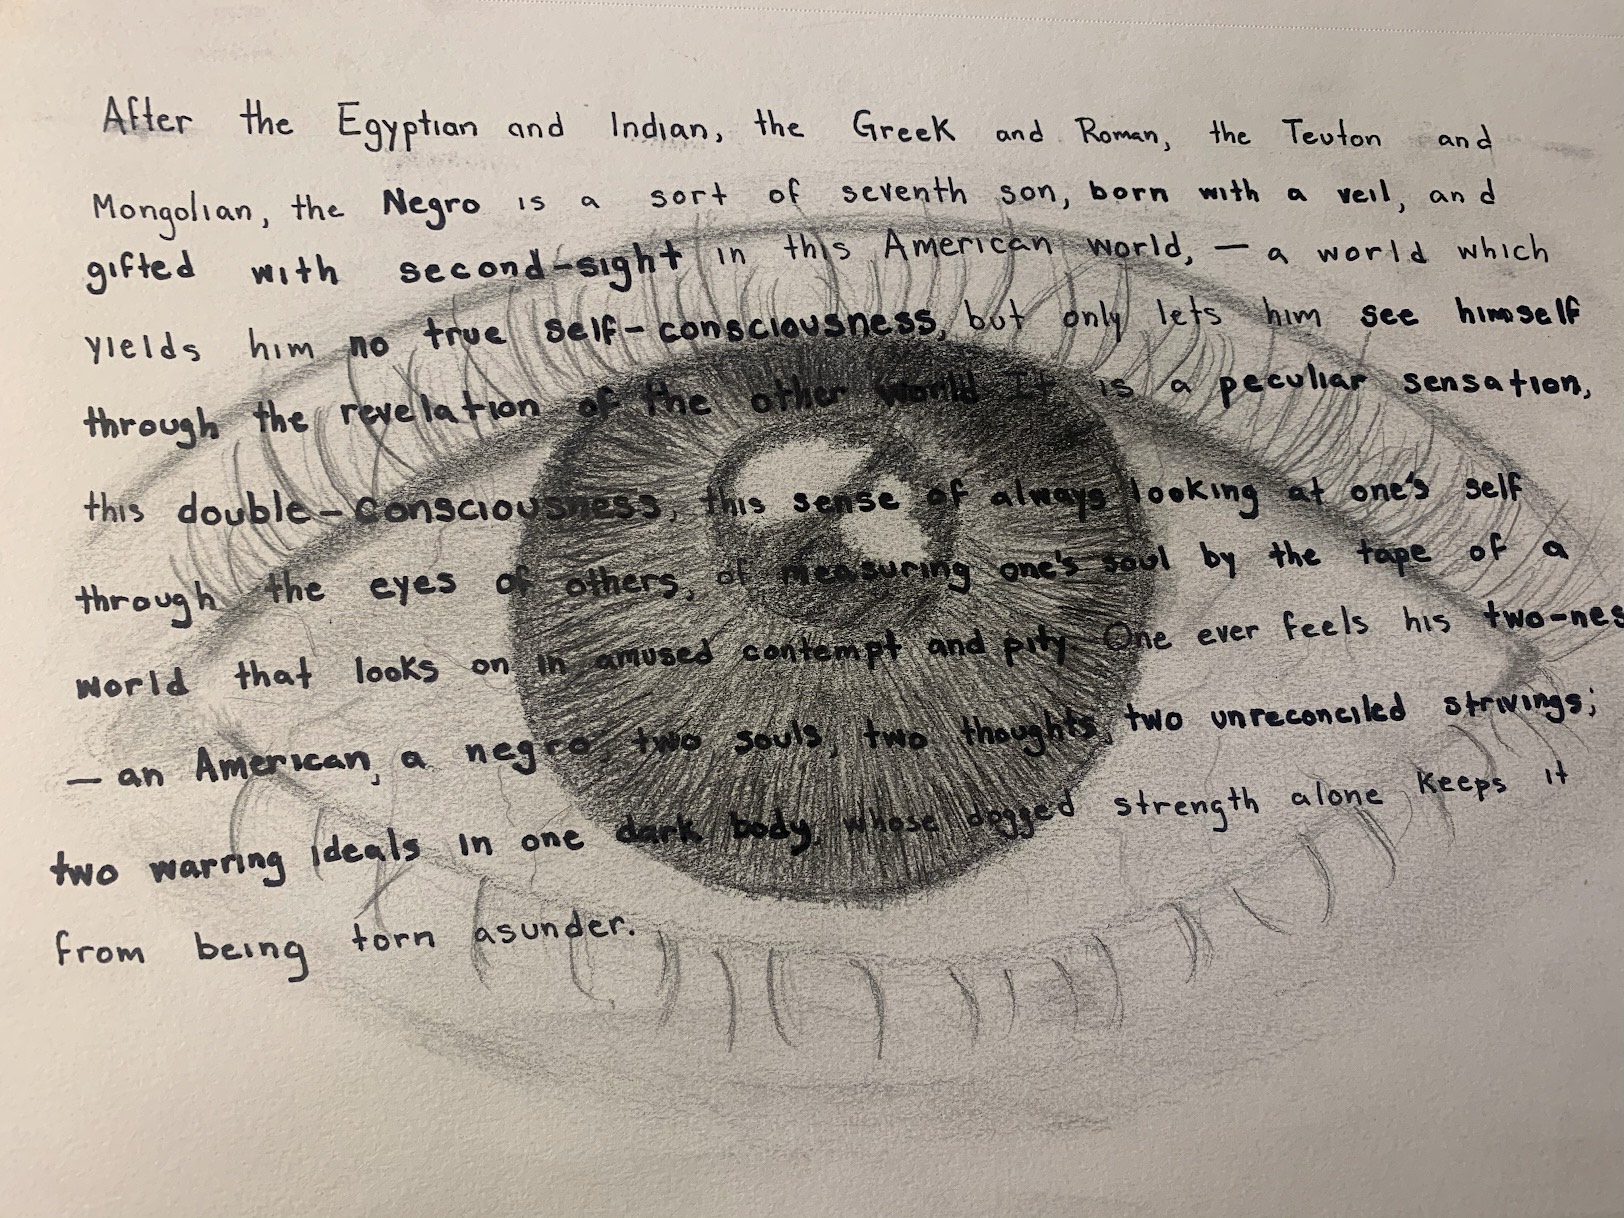 After the Egyptian and Indian, the Greek and Roman, the Teuton and
Mongolian, the Negro is a sort of seventh son, born with a veil, and
gifted with second-sight in this American world, — a world which
yields him no true self-consciousness, but only lets him see himself
through the revelation of the other world It is a peculiar sensation,
this double-consciousness, this sense of always looking at one's self
through the eyes of others, of measuring one's soul by the tape of a
world that looks on in amused contempt and pity. One ever feels his two-nes
— an American, a negro; two souls, two thoughts, two unreconciled strivings;
two warring ideals in one dark body, whose dogged strength alone keeps it
from being torn asunder.